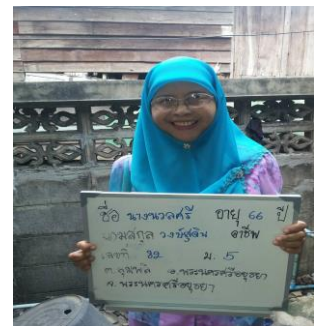 ชื่อ นางนวลศรี อายุ 66 ปี
นามสกุล วงษ์สุดิน อาชีพ
เลขที่ 32 ม. 5
ต. ภูเขาทอง อ. พระนครศรีอยุธยา
จ. พระนครศรีอยุธยา